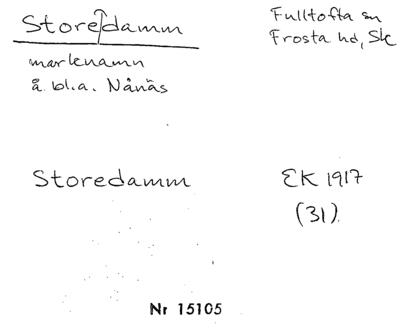 Storedamm
Fulltofta sn
Frosta hd, Sk
marknamn
å bl.a. Nånäs
Storedamm
EK 1917
(31)
Nr 15105